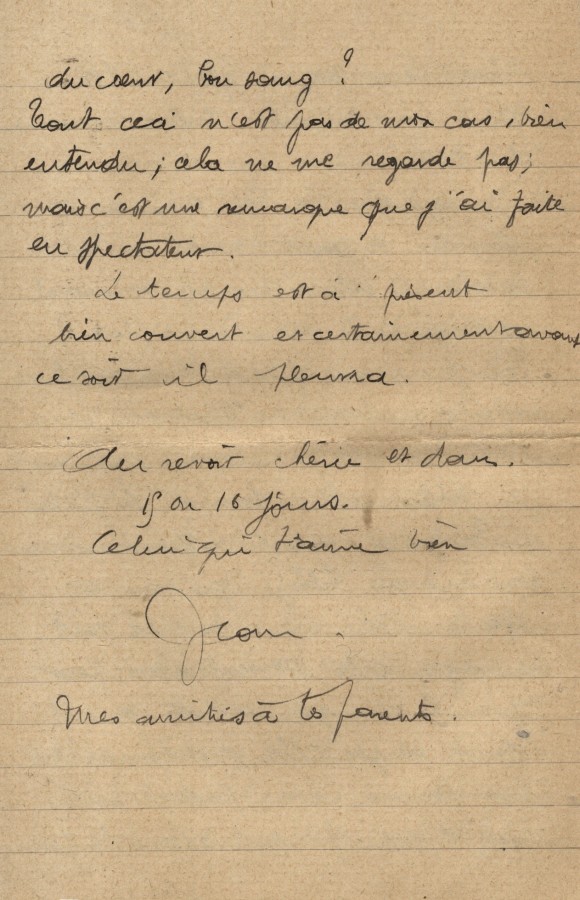 du cœur, bon sang ?
Tout ceci n'est pas de mon cas, bien
entendu ; cela ne me regarde pas ;
mais c'est une remarque que j'ai faite
en spectateur.
Le temps est à présent
bien couvert et certainement avant
ce soir il pleuvra.
Au revoir chérie et dans.
15 ou 16 jours.
Celui qui t'aime bien
Jean.
Mes amitiés à tes parents.